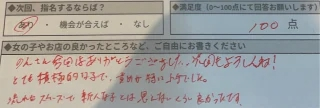 ◆次回、指名するならば？
あり ・ 機会が合えば ・ なし
◆満足度（0～100点にて回答お願いします）
100 点
◆女の子やお店の良かったところなど、ご自由にお書きください
のんさん今回はありがとうございました。次回もよろしくね!
とても積極的な子で、
流れもスムーズで新人さんとは思えないくらい良かったです。